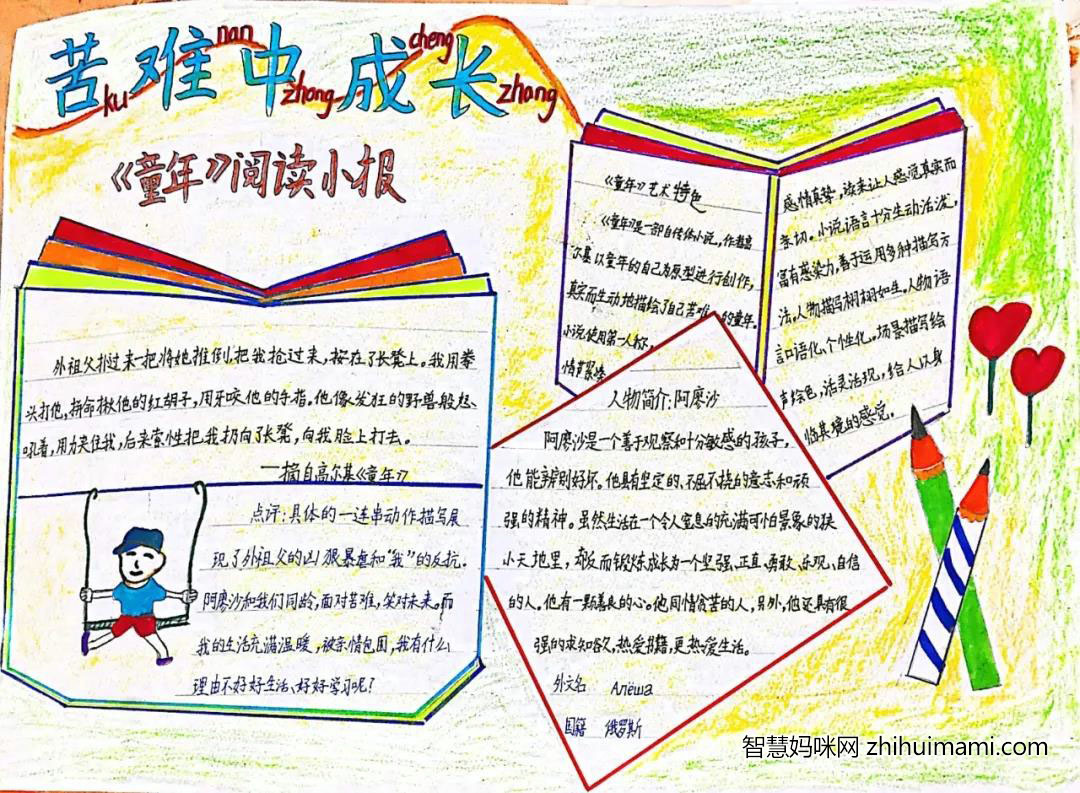 苦难中成长
ku nan zhong cheng zhang
《童年》阅读小报
外祖父扑过来一把将她推倒,把我抢过来,按在了长凳上。我用拳
头打他,拼命揪他的红胡子,用牙咬他的手指。他像发狂的野兽般怒
吼着,用力夹住我,后来索性把我扔向了长凳,向我脸上打去。
——摘自高尔基《童年》
点评:具体的一连串动作描写展
现了外祖父的凶狠暴虐和“我”的反抗。
阿廖沙和我们同龄,面对苦难,笑对未来。而
我的生活充满温暖,被亲情包围,我有什么
理由不好好生活、好好学习呢?
《童年》艺术特色
《童年》是一部自传体小说,作者高
尔基以童年的自己为原型进行创作,
真实而生动地描绘了自己苦难的童年。
小说使用第一人称,
情节紧凑
感情真挚,读来让人感觉真实而
亲切。小说语言十分生动活泼,
富有感染力,善于运用多种描写方
法。人物描写栩栩如生。人物语
言口语化、个性化。场景描写绘
声绘色,活灵活现,给人以身
临其境的感觉。
人物简介:阿廖沙
阿廖沙是一个善于观察和十分敏感的孩子,
他能辨别好坏。他具有坚定的、不屈不挠的意志和顽
强的精神。虽然生活在一个令人窒息的充满可怕景象的狭
小天地里,却反而锻炼成长为一个坚强、正直、勇敢、乐观、自信
的人。他有一颗善良的心。他同情贫苦的人,另外,他还具有很
强的求知欲,热爱书籍,更热爱生活。
外文名 Алёша
国籍 俄罗斯
智慧妈咪网 zhihuimami.com